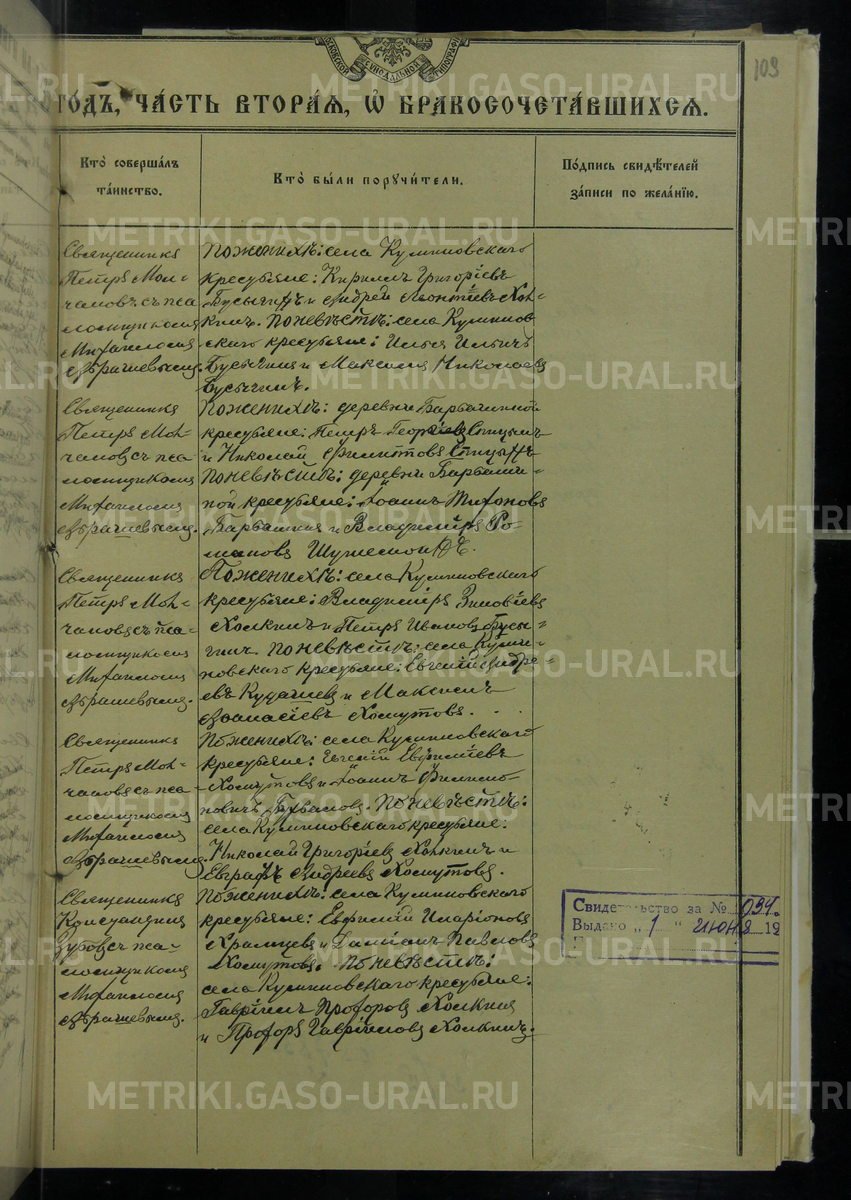 109
ГО́ДЪ, ЧА́СТЬ ВТОРА́Я, Ѡ҆ БРАКОСОЧЕТА́ВШИХСЯ.
Кто̀ соверша́лъ
та́инство.
Кто̀ бы́ли поручи́тели.
По́дпись свидѣ́телей
за́писи по жела́нїю.
Священникъ
Петръ Мол-
чановъ съ пса
ломщикомъ
Михаиломъ
По женихѣ: села Куликовскаго
крестьяне: Кириллъ Григорїевъ
Бусыгинъ и Андрей Леонтїевъ Хол-
кинъ. По невѣстѣ: села Куликов
скаго крестьяне: Илья Ильичъ
Бусыгинъ и Максимъ Николаевъ
Бусыгинъ.
Священникъ
Петръ Мол-
чановъ съ пса
ломщикомъ
Михаиломъ
По женихѣ: деревни
крестьяне: Петръ Георгїевъ Спицынъ
и Николай Филипповъ Спицынъ
По невѣстѣ: деревни
ной крестьяне: Іоаннъ Тихоновъ
и Владимїръ Ро-
мановъ
Священникъ
Петръ Мол-
чановъ съ пса-
ломщикомъ
Михаиломъ
По женихѣ: села Куликовскаго
крестьяне: Владимїръ Зиновїевъ
Холкинъ и Петръ Ивановъ Бусы-
гинъ. По невѣстѣ: села Кули-
ковскаго крестьяне: Евгенїй Андре-
евъ Кудашевъ и Максимъ
Аѳанасїевъ Хомутовъ.
Священникъ
Петръ Мол-
чановъ съ пса-
ломщикомъ
Михаиломъ
По женихѣ: села Куликовскаго
крестьяне: Евгенїй Евфимїевъ
Хомутовъ и Іоаннъ Филимо-
новичъ
По невѣстѣ:
села Куликовскаго крестьяне:
Николай Григорїевъ Холкинъ и
Евграфъ Андреевъ Хомутовъ.
Священникъ
Константинъ
Зубовъ съ пса-
ломщикомъ
Михаиломъ
По женихѣ: села Куликовскаго
крестьяне: Евфимїй Иларїоновъ
Храмцевъ и Дамїанъ Павловъ
Хомутовъ. По невѣстѣ:
села Куликовскаго крестьяне:
Гаврїилъ Прохоровъ Холкинъ
и Прохоръ Гаврїиловъ Холкинъ.
Свидетельство за №
Выдано „ 1 " июня 19
METRIKI.GASO-URAL.RU